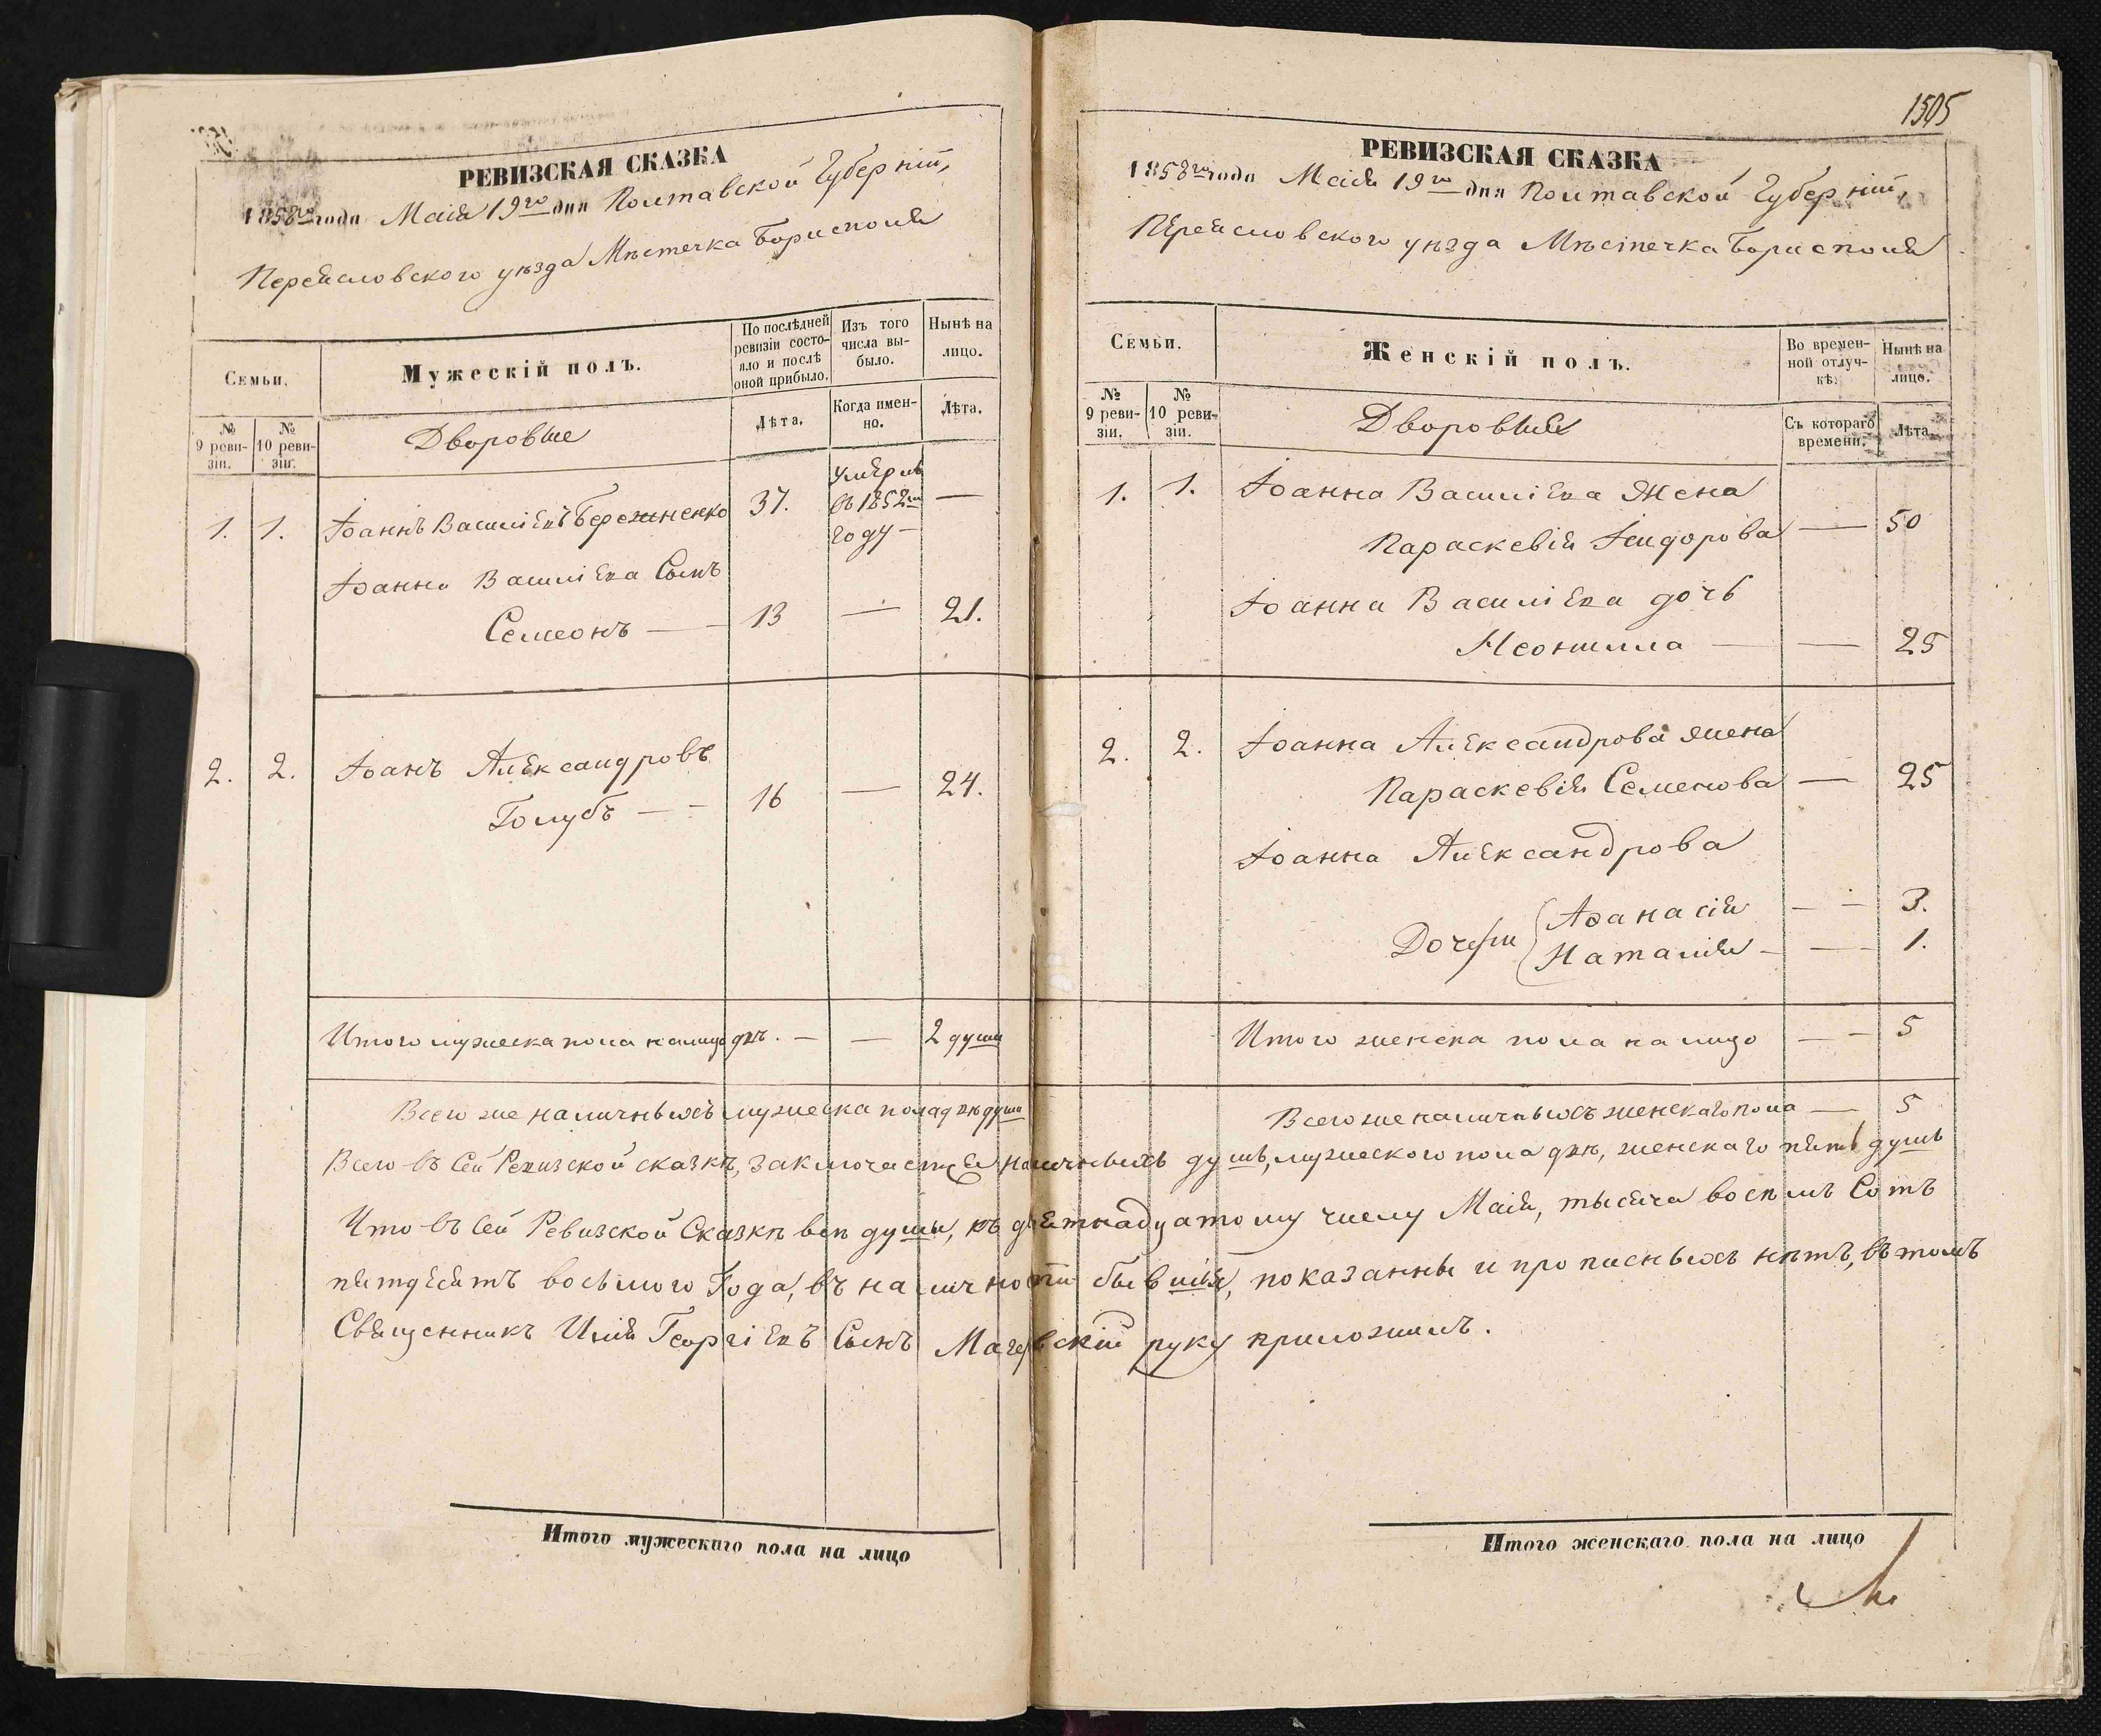 РЕВИЗСКАЯ СКАЗКА
1858го года Маія 19го дня Полтавской Губерніи,
Переяславского уѣзда Мѣстечка Борисполя
Семьи.
Мужескій полъ.
По послѣдней ревизіи состо-
яло и послѣ
оной прибыло.
Изъ того
числа вы-
было.
Нынѣ на
лицо.
№
9 реви-
зіи.
№
10 реви-
зіи.
Дворовые
Лѣта.
Когда имен-
но.
Лѣта.
1. 1. Іоаннъ Василіевъ 37. Умеръ
въ 1852м
году —
—
Іоанна Василіева Сынъ
Семеонъ — 13 — 21.
2. 2. Іоанъ Александровъ
Голубъ — 16 — 24.
Итого мужеска пола налицо двѣ. — — 2 души
Всего же наличныхъ мужеска пола двѣ души
1505
РЕВИЗСКАЯ СКАЗКА
1858го года Маія 19го дня Полтавской Губерніи,
Переясловского уѣзда Мѣстечка Борисполя
Семьи.
Женскій полъ.
Во времен-
ной отлуч-
кѣ.
Нынѣ на
лицо.
№
9 реви-
зіи.
№
10 реви-
зіи.
Дворовыя
Съ котораго
времени.
Лѣта.
1. 1. Іоанна Василіева Жена
Параскевія Ісидорова — 50
Іоанна Василіева дочь
Неонилла — — 25
2. 2. Іоанна Александрова жена
Параскевія Семенова — 25
Іоанна Александрова
Дочери Аѳанасія — — 3.
Наталія — — 1.
Итого женска пола на лицо — — 5
Всего же наличныхъ женскаго пола — 5
Всего въ Сей Ревизской сказкѣ, заключается наличныхъ душъ, мужеского пола двѣ, женскаго пять душъ
Что въ сей Ревизской Сказкѣ всѣ души, къ девятнадцатому числу Маія, тысяча восемь Сотъ
пятдесятъ восьмого Года, въ наличности бывшія, показанны и прописныхъ нѣтъ, въ томъ
Священникъ Илія Георгіевъ Сынъ Мачевскій руку приложилъ.
Итого мужескаго пола на лицо
Итого женскаго пола на лицо